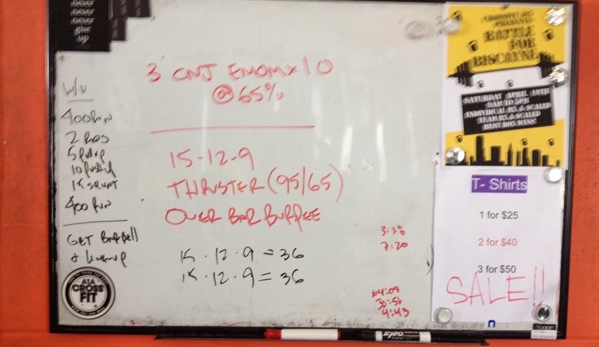 never
never
never
give
up
W/U
400 RUN
2 RDS
10 pushup
15 squat
400 RUN
GET BARBELL
3 CNJ EMOM x 10
@ 65%
15-12-9
THRUSTER (95/65)
OVER BAR BURPEE
15 · 12 · 9 = 36
15 · 12 · 9 = 36
7:20
30:56
4:43
A1A
CROSS
FIT
BATTLE
FOR
BISCAYNE
SATURDAY APRIL
INDIVIDUAL RX & SCALED
TEAM RX & SCALED
BEST BOX WINS!
T- Shirts
1 for $25
2 for $40
3 for $50
SALE!!
EXPO